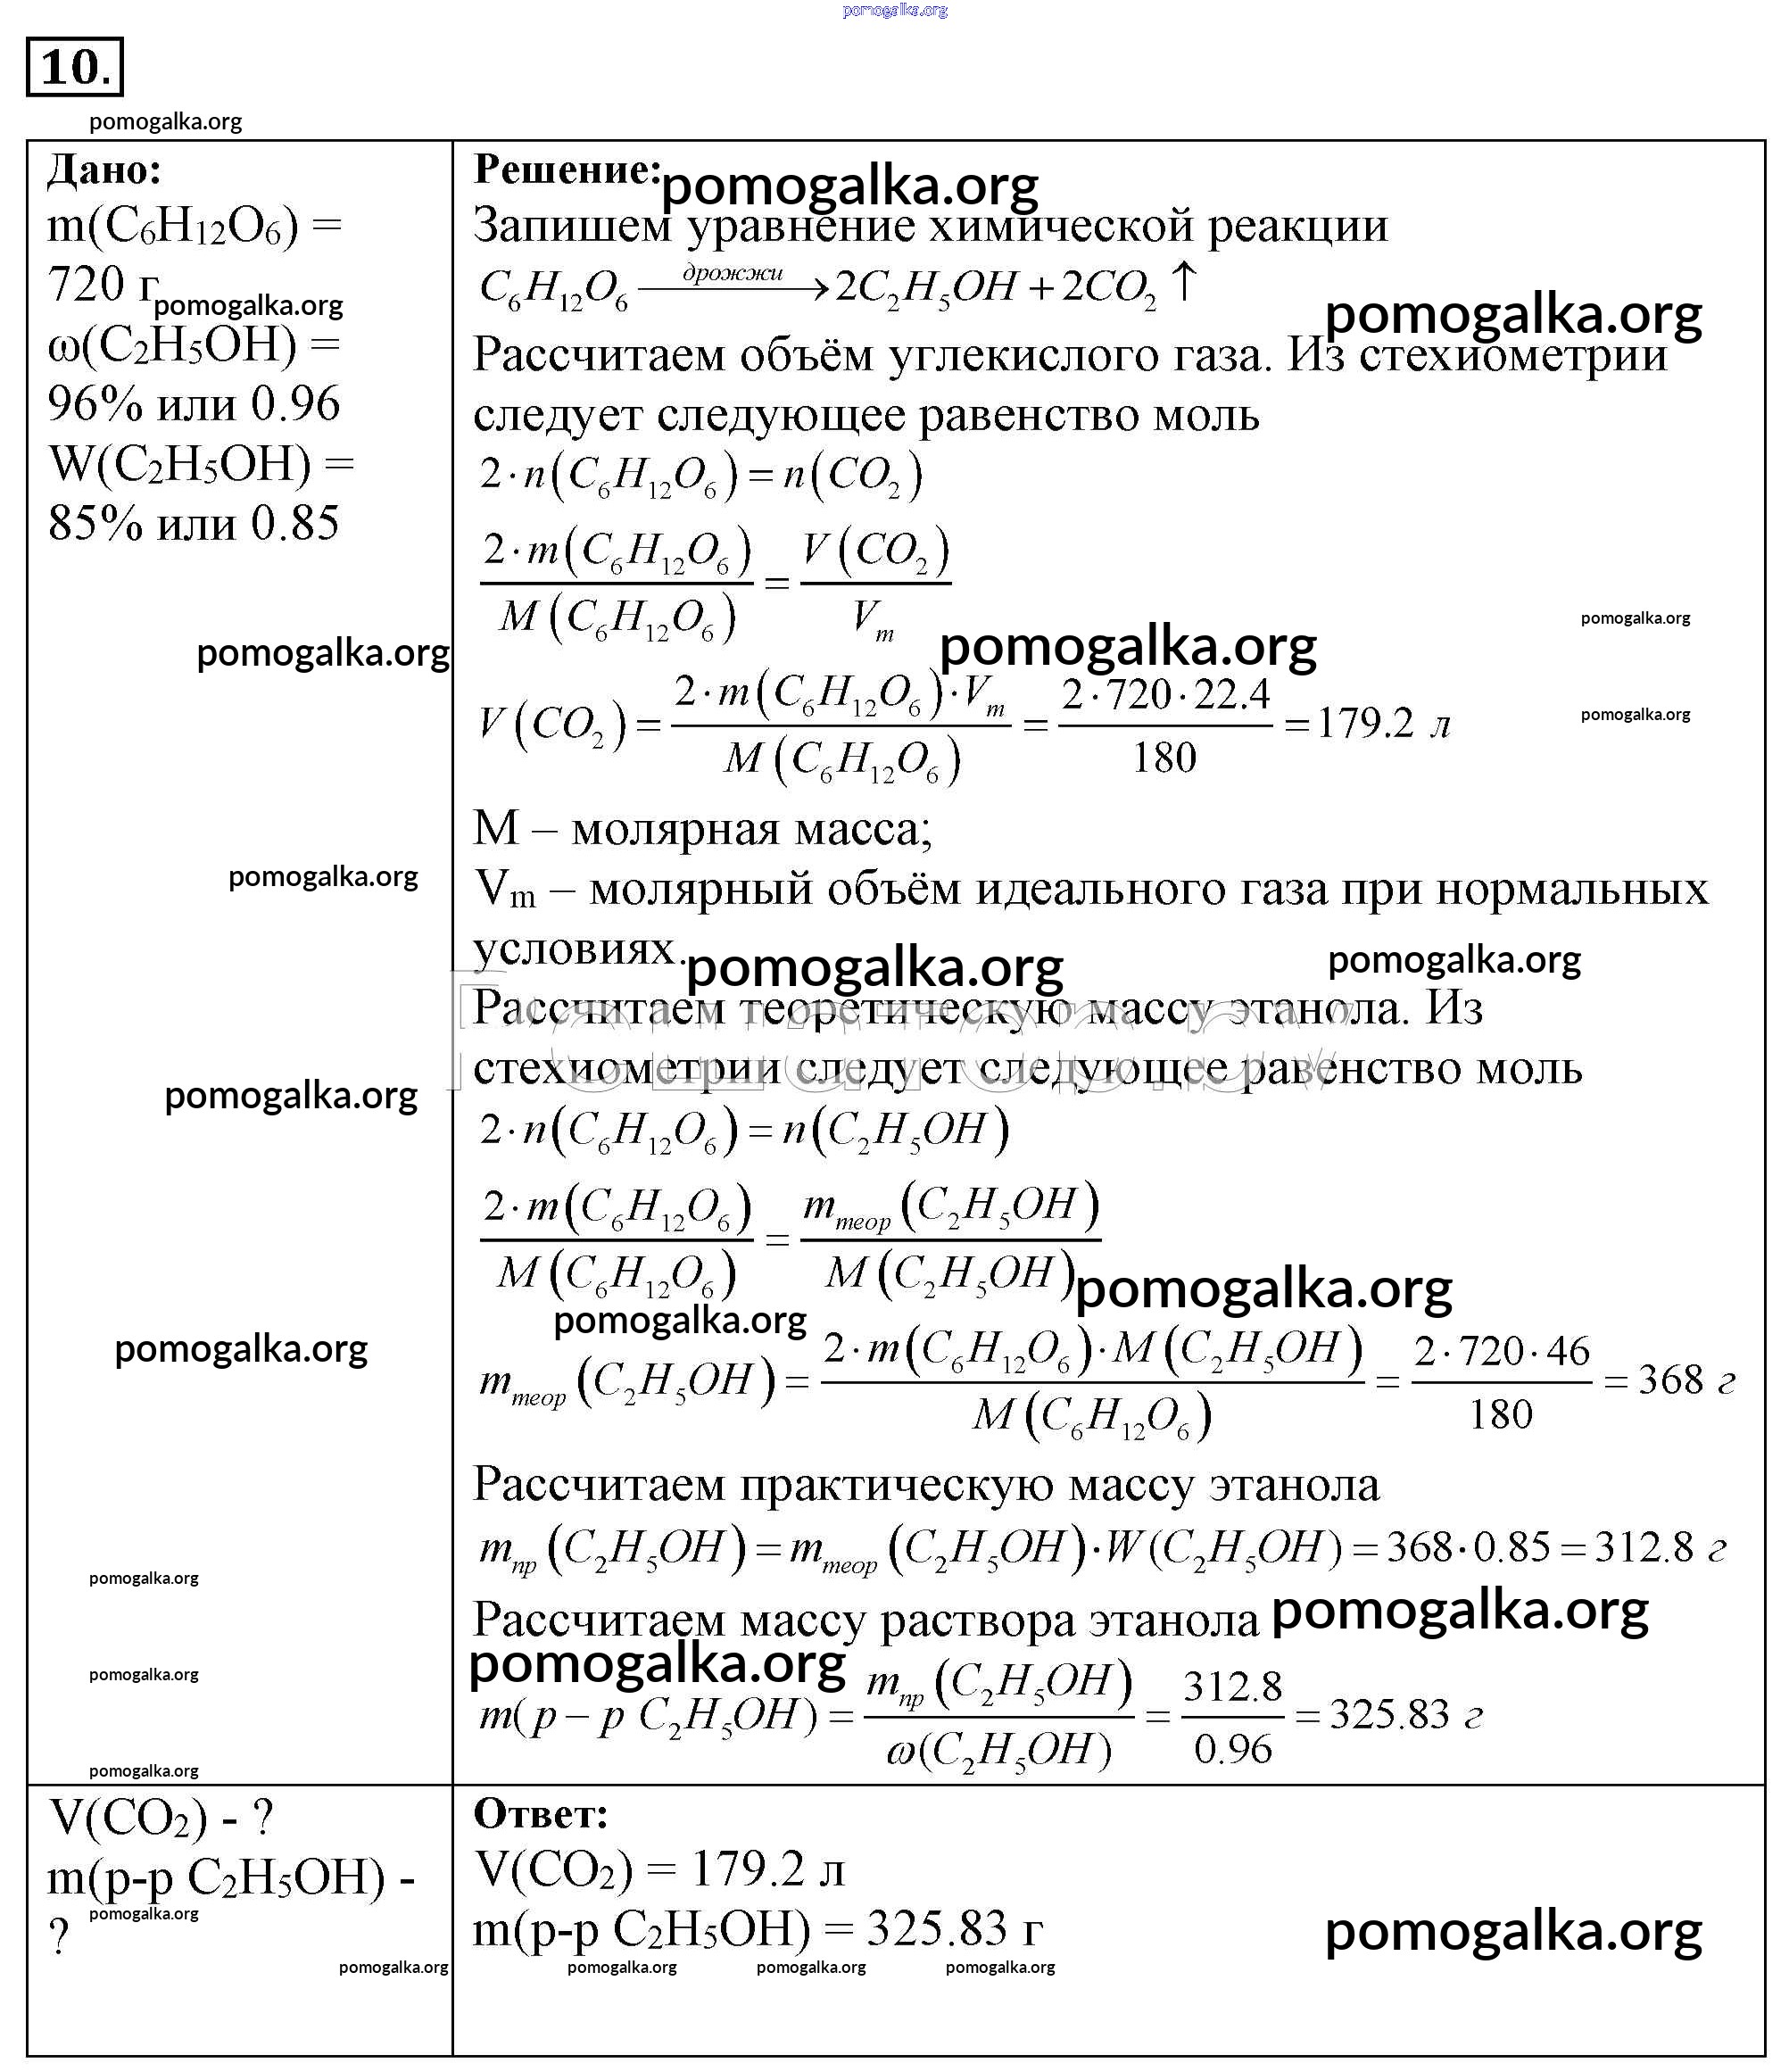 pomogalka.org
10.
pomogalka.org
Дано:
m(C₆H₁₂O₆) =
720 г
pomogalka.org
ω(C₂H₅OH) =
96% или 0.96
W(C₂H₅OH) =
85% или 0.85
pomogalka.org
pomogalka.org
pomogalka.org
pomogalka.org
pomogalka.org
pomogalka.org
pomogalka.org
Решение:
pomogalka.org
Запишем уравнение химической реакции
C₆H₁₂O₆ —дрожжи→ 2C₂H₅OH + 2CO₂ ↑
pomogalka.org
Рассчитаем объём углекислого газа. Из стехиометрии
следует следующее равенство моль
2·n(C₆H₁₂O₆) = n(CO₂)
2·m(C₆H₁₂O₆) / M(C₆H₁₂O₆) = V(CO₂) / Vₘ
pomogalka.org
pomogalka.org
V(CO₂) = 2·m(C₆H₁₂O₆)·Vₘ / M(C₆H₁₂O₆) = 2·720·22.4 / 180 = 179.2 л
pomogalka.org
M – молярная масса;
Vₘ – молярный объём идеального газа при нормальных
условиях.
pomogalka.org
pomogalka.org
Рассчитаем теоретическую массу этанола. Из
стехиометрии следует следующее равенство моль
2·n(C₆H₁₂O₆) = n(C₂H₅OH)
2·m(C₆H₁₂O₆) / M(C₆H₁₂O₆) = mтеор(C₂H₅OH) / M(C₂H₅OH)
pomogalka.org
pomogalka.org
mтеор(C₂H₅OH) = 2·m(C₆H₁₂O₆)·M(C₂H₅OH) / M(C₆H₁₂O₆) = 2·720·46 / 180 = 368 г
Рассчитаем практическую массу этанола
mпр(C₂H₅OH) = mтеор(C₂H₅OH)·W(C₂H₅OH) = 368·0.85 = 312.8 г
Рассчитаем массу раствора этанола
pomogalka.org
pomogalka.org
m(р–р C₂H₅OH) = mпр(C₂H₅OH) / ω(C₂H₅OH) = 312.8 / 0.96 = 325.83 г
V(CO₂) - ?
m(р-р C₂H₅OH) -
?
pomogalka.org
pomogalka.org
Ответ:
V(CO₂) = 179.2 л
m(р-р C₂H₅OH) = 325.83 г
pomogalka.org
pomogalka.org
pomogalka.org
pomogalka.org